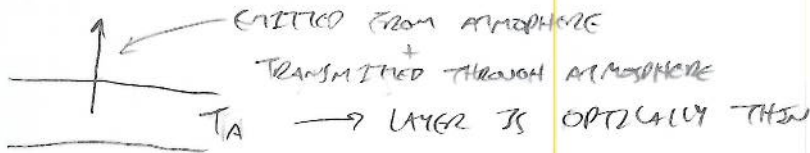 EMITTED FROM ATMOPHERE
+
TRANSMITTED THROUGH ATMOSPHERE
T_A → LAYER IS OPTICALLY THIN